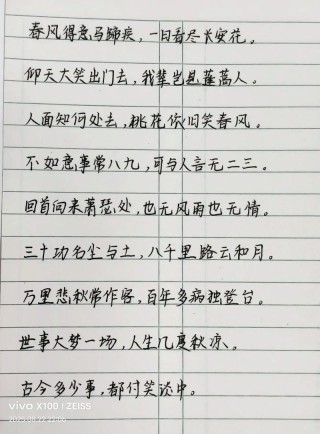 春风得意马蹄疾，一日看尽长安花。
仰天大笑出门去，我辈岂是蓬蒿人。
人面知何处去，桃花依旧笑春风。
不如意事常八九，可与人言无二三。
回首向来萧瑟处，也无风雨也无情。
三十功名尘与土，八千里路云和月。
万里悲秋常作客，百年多病独登台。
世事大梦一场，人生几度秋凉。
古今多少事，都付笑谈中。
vivo X100 | ZEISS